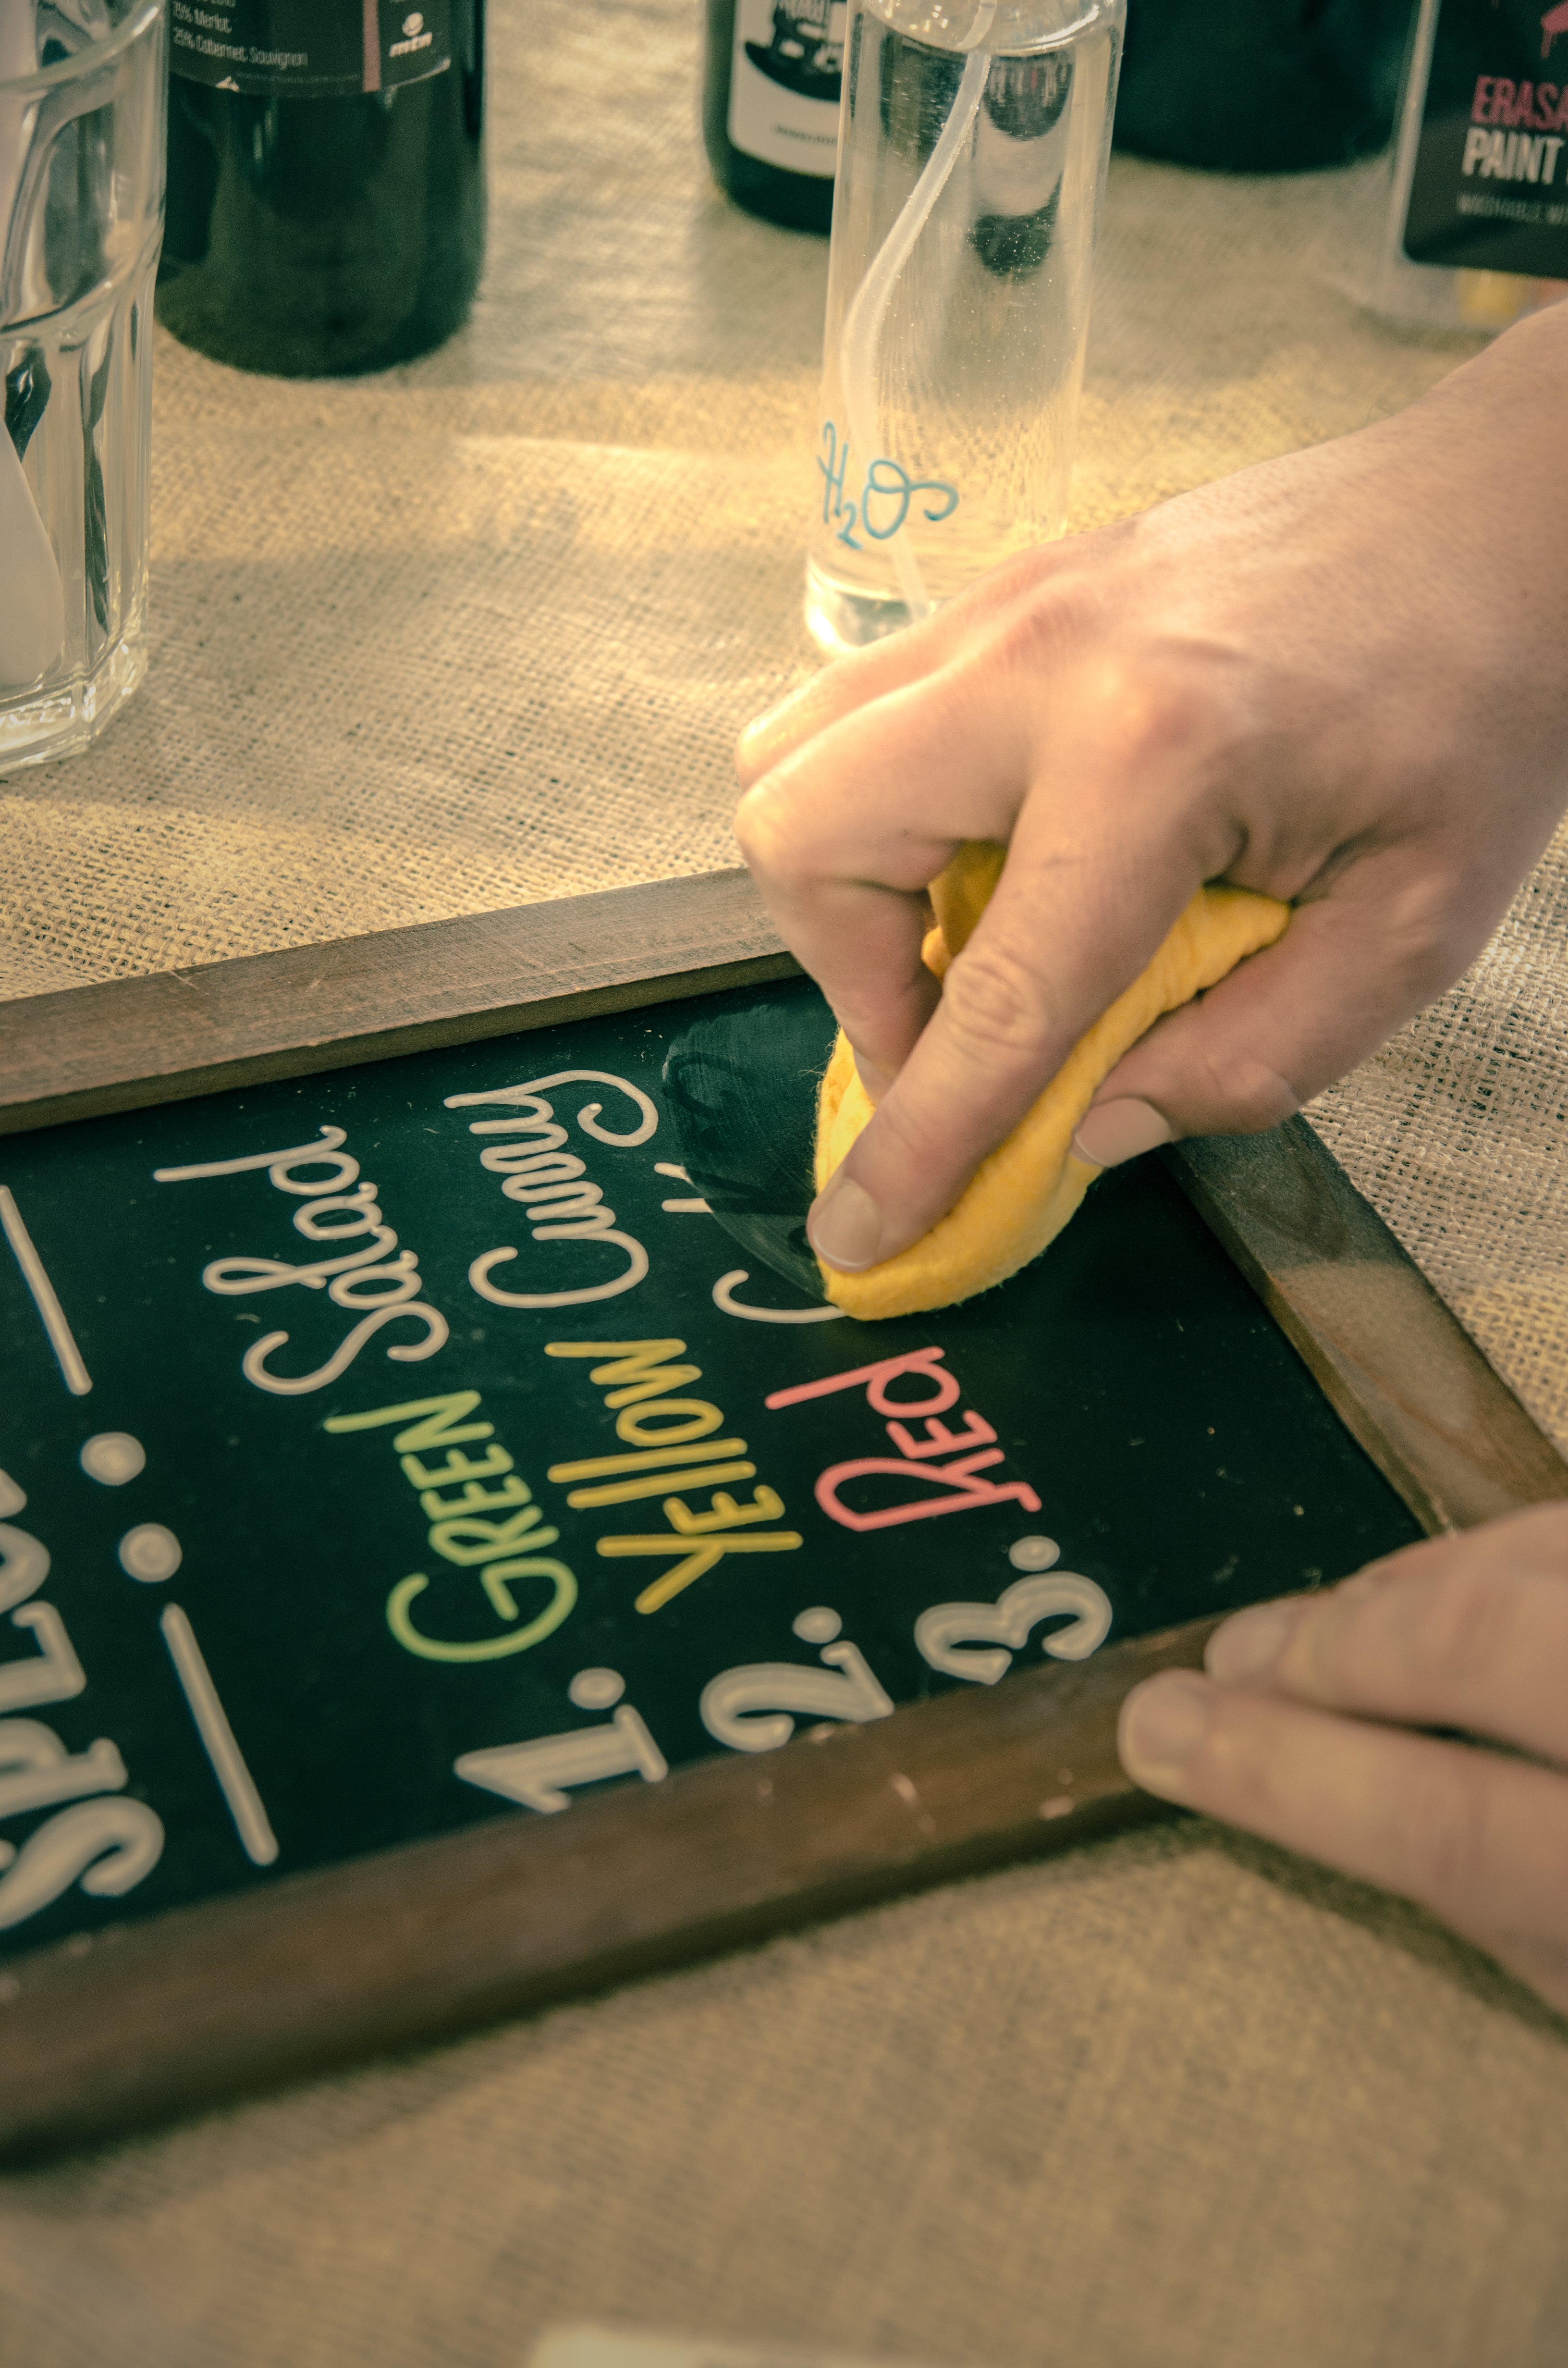 75% Merlot,
25% Cabernet Sauvignon
mtn
ERASA
PAINT
WASHABLE
H₂O
1. GREEN Salad
2. YELLOW Curry
3. RED C